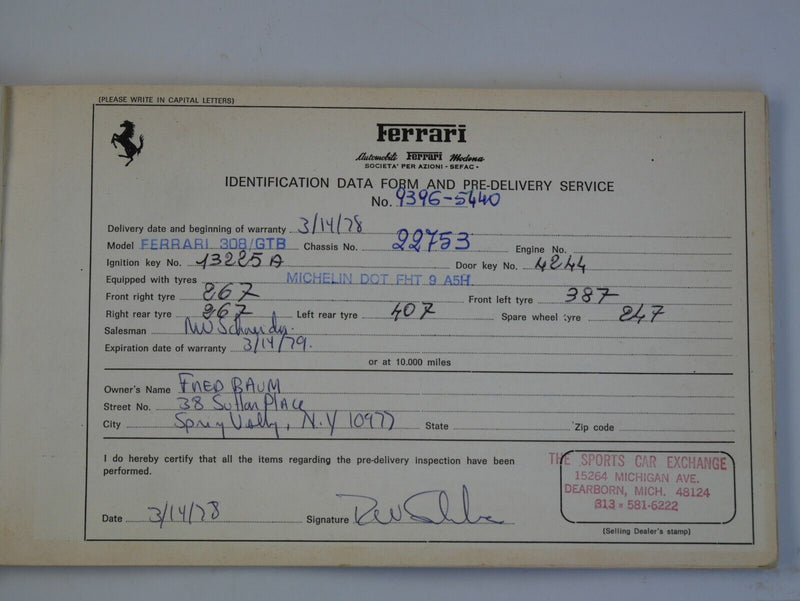 (PLEASE WRITE IN CAPITAL LETTERS)
Ferrari
Automobili Ferrari Modena
SOCIETA' PER AZIONI - SEFAC -
IDENTIFICATION DATA FORM AND PRE-DELIVERY SERVICE
No. 9396-5440
Delivery date and beginning of warranty 3/14/78
Model FERRARI 308/GTB Chassis No. 22753 Engine No.
Ignition key No. 13225 A Door key No. 4244
Equipped with tyres MICHELIN DOT FHT 9 A5H.
Front right tyre 267 Front left tyre 387
Right rear tyre 267 Left rear tyre 407 Spare wheel tyre 247
Salesman RW Schneider.
Expiration date of warranty 3/14/79.
or at 10.000 miles
Owner's Name FRED BAUM
Street No. 38 Sutton Place
City Spring Valley, N.Y 10977 State Zip code
I do hereby certify that all the items regarding the pre-delivery inspection have been
performed.
THE SPORTS CAR EXCHANGE
15264 MICHIGAN AVE.
DEARBORN, MICH. 48124
313 - 581-6222
Date 3/14/78 Signature
(Selling Dealer's stamp)